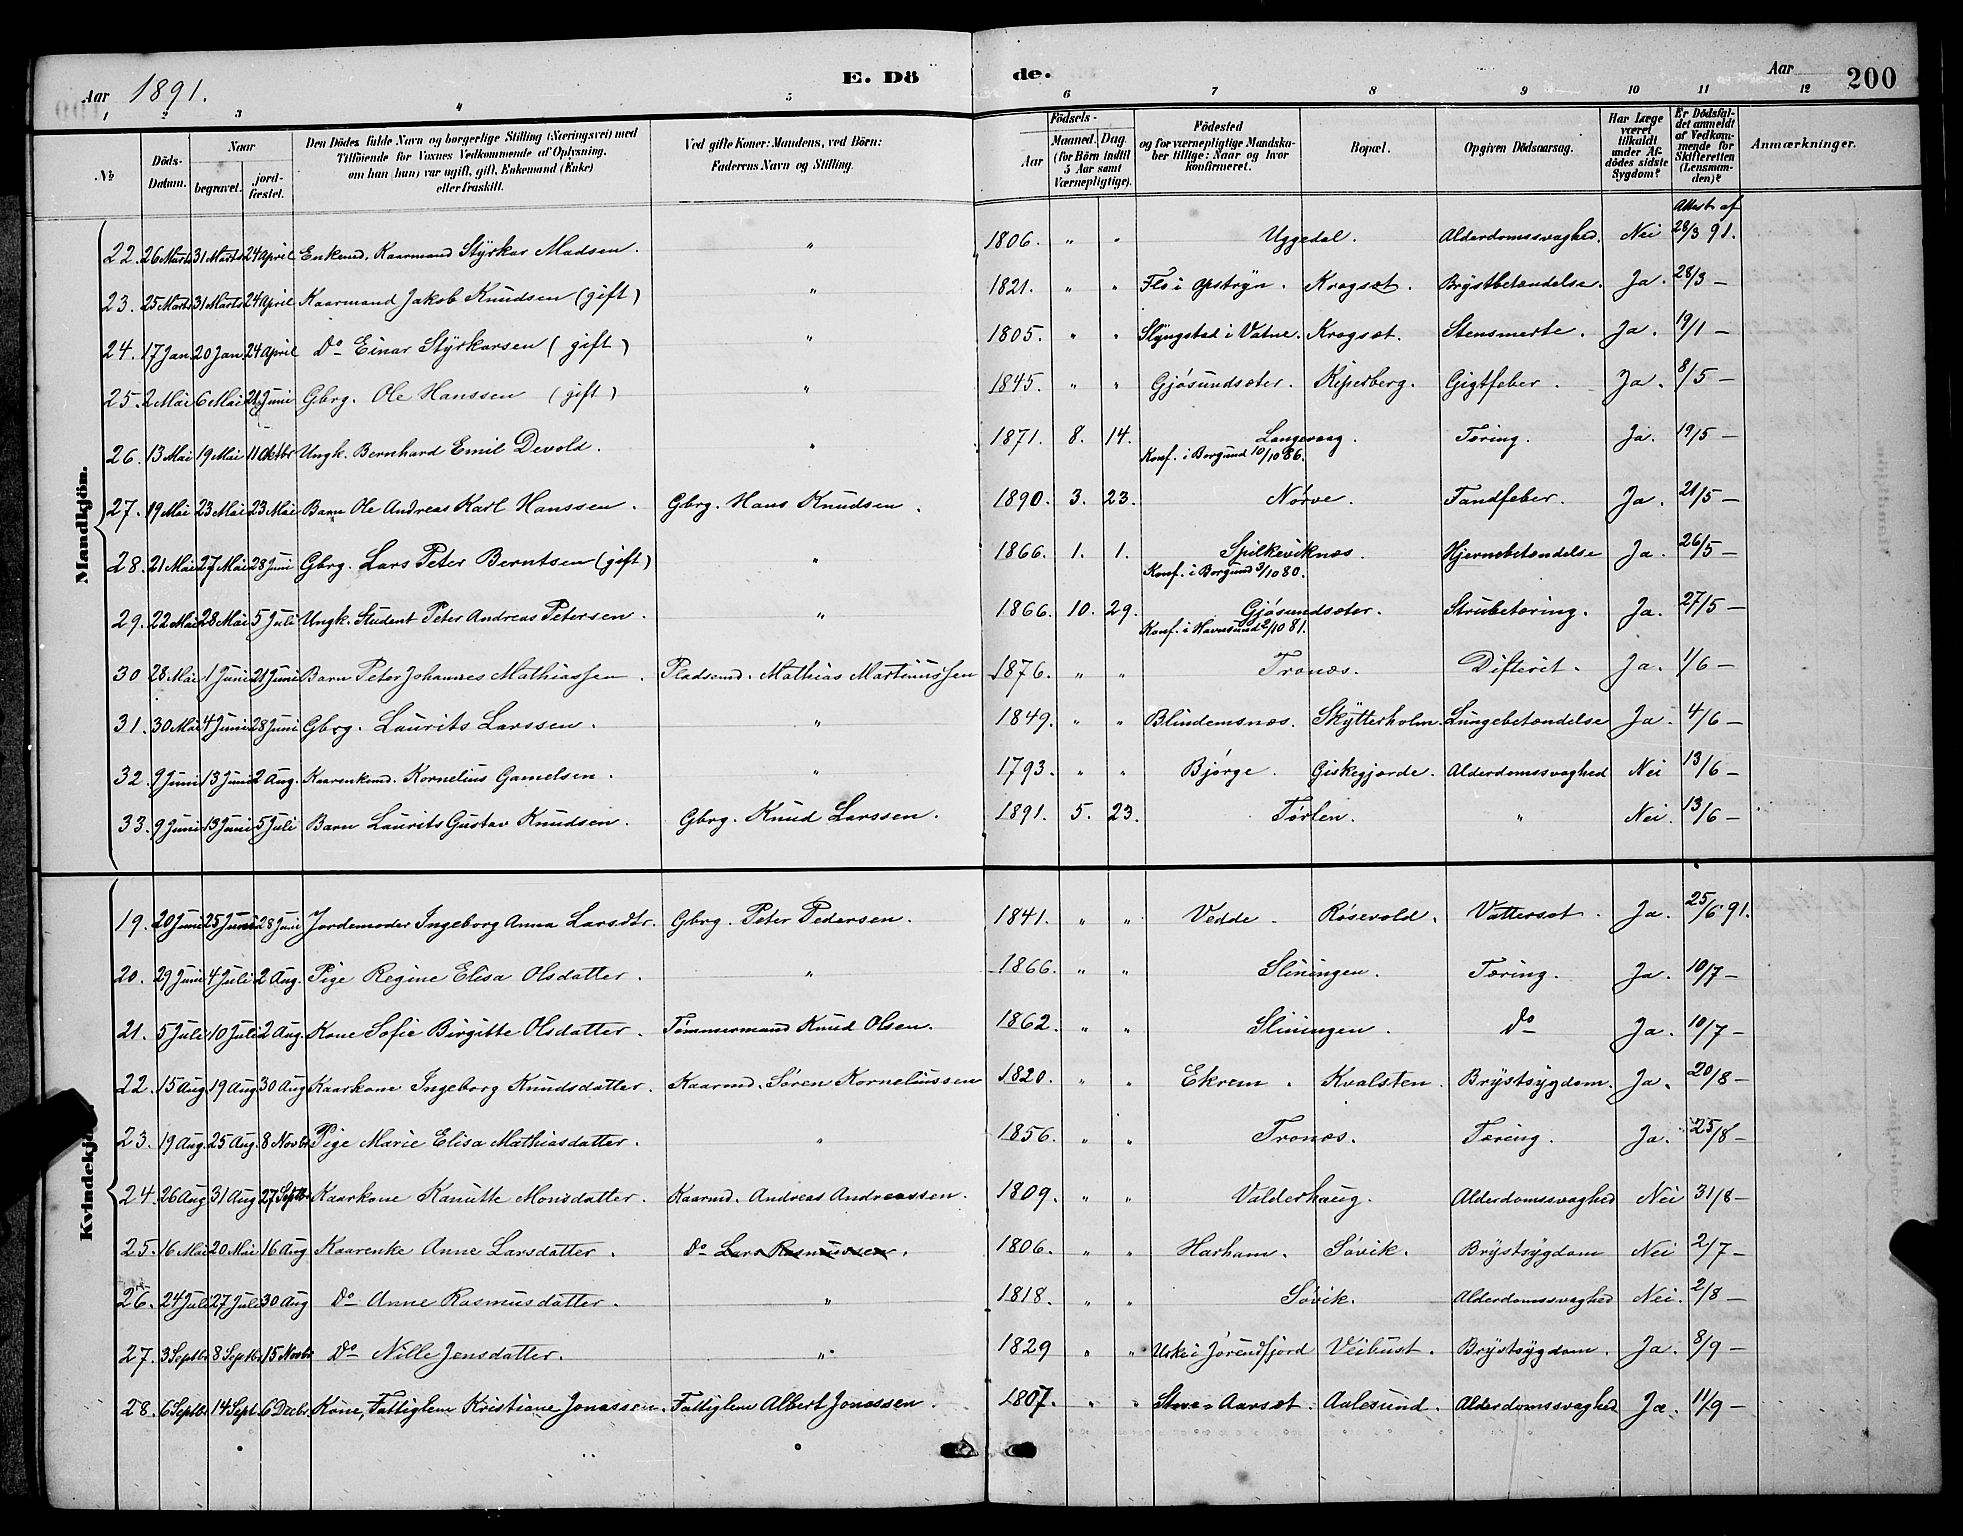 Aar 1891. E. Dö de. Aar 200
1 2 3 4 5 6 7 8 9 10 11 12
№ Döds-Datum. Naar begravet. jordfæstet. Den Dödes fulde Navn og borgerlige Stilling (Næringsvei) med Tilföiende for Voxnes Vedkommende af Oplysning, om han (hun) var ugift, gift, Enkemand (Enke) eller fraskilt. Ved gifte Koner: Mandens, ved Börn: Faderens Navn og Stilling. Födsels- Aar Maaned. Dag. (for Börn indtil 5 Aar samt Værnepligtige). Födested og for værnepligtige Mandskaber tillige: Naar og hvor konfirmeret. Bopæl. Opgiven Dödsaarsag. Har Læge været tilkaldt under Afdödes sidste Sygdom? Er Dödsfaldet anmeldt af Vedkommende for Skifteretten (Lensmanden)? Anmærkninger.
Mandkjön.
Attest af
22. 26 Marts 31 Marts 24 April Enkemd. Kaarmand Styrkar Madsen. " 1806. " " Uggedal. Alderdomssvaghed. Nei 28/3 91.
23. 25 Marts 31 Marts 24 April Kaarmand Jakob Knudsen (gift) " 1821. " " Flo i Opstryn. Krogsæt. Brystbetændelse. Ja. 28/3 —
24. 17 Jan. 20 Jan. 24 April Do Einar Styrkarsen (gift) " 1805. " " Slyngstad i Vatne. Krogsæt. Stensmerte. Ja. 19/1 —
25. 2 Mai 6 Mai 21 Juni Gbrg. Ole Hanssen (gift) " 1845. " " Gjøsundsæter. Kiperberg. Gigtfeber. Ja. 8/5 —
26. 13 Mai 19 Mai 11 Oktbr Ungk. Bernhard Emil Devold. " 1871. 8. 14. Langevaag. Tæring. Ja. 19/5 —
Konf. i Borgund 10/10 86.
27. 19 Mai 23 Mai 23 Mai Barn Ole Andreas Karl Hanssen. Gbrg. Hans Knudsen. 1890. 3. 23. Nørve. Tandfeber. Ja. 21/5 —
28. 21 Mai 27 Mai 28 Juni Gbrg. Lars Peter Berntsen (gift) " 1866. 1. 1. Spilkeviknæs. Hjernebetændelse Ja. 26/5 —
Konf. i Borgund 3/10 80.
29. 22 Mai 28 Mai 5 Juli Ungk. Student Peter Andreas Petersen. " 1866. 10. 29. Gjøsundsæter. Strubetæring. Ja. 27/5 —
Konf. i Havnsund 2/10 81.
30 28 Mai 1 Juni 21 Juni Barn Peter Johannes Mathiassen. Pladsemd. Mathias Martinussen 1876. " " Tronæs. Difterit. Ja. 1/6 —
31. 30 Mai 4 Juni 28 Juni Gbrg. Laurits Larssen. " 1849. " " Blindemsnæs. Skytterholm. Lungebetændelse Ja. 4/6 —
32. 9 Juni 13 Juni 2 Aug. Kaarenkemd. Kornelius Gamelsen. " 1793. " " Bjørge. Giskegjerde. Alderdomssvaghed Nei 13/6 —
33. 9 Juni 13 Juni 5 Juli Barn Laurits Gustav Knudsen. Gbrg. Knud Larssen. 1891. 5. 23. Tørlen. " Nei. 13/6 —
Kvindekj
19. 20 Juni 25 Juni 28 Juni Jordemoder Ingeborg Anna Larsdtr. Gbrg. Peter Pedersen. 1841. " " Vedde. Røsevold. Vattersot. Ja. 25/6 91.
20. 29 Juni 4 Juli 2 Aug. Pige Regine Elisa Olsdatter. " 1866. " " Slinningen. Tæring. Ja. 10/7 —
21. 5 Juli 10 Juli 2 Aug. Kone Sofie Birgitte Olsdatter. Tømmermand Knud Olsen. 1862. " " Slinningen. Do Ja. 10/7 —
22. 15 Aug. 19 Aug. 30 Aug Kaarkone Ingeborg Knudsdatter. Kaarmd. Søren Korneliussen 1820. " " Ekrem. Kvalsten. Brystsygdom. Ja. 20/8 —
23. 19 Aug. 25 Aug. 8 Novbr. Pige Marie Elisa Mathiasdatter. " 1856. " " Tronæs. Tæring. Ja. 25/8 —
24. 26 Aug 31 Aug 27 Septbr Kaarkone Kanutte Monsdatter. Kaarmd. Andreas Andreassen. 1809. " " Valderhaug. Alderdomssvaghed Nei 31/8 —
25. 16 Mai 20 Mai 16 Aug Kaarenke Anne Larsdatter. Do Lars Rasmussen. 1806. " " Harham. Søvik. Brystsygdom Nei 2/7 —
26. 24 Juli 27 Juli 30 Aug Do Anne Rasmusdatter. " 1818. " " Søvik. Alderdomssvaghed Nei. 2/8 —
27. 3 Septbr 8 Septbr. 15 Novbr Do Nille Jensdatter. " 1829 " " Urke i Jørendfjord Veibust. Brystsygdom. Ja. 8/9 —
28. 6 Septbr 14 Sept. 6 Decbr. Kone, Fattiglem Kristiane Jonassen. Fattiglem Albert Jonassen. 1807. " " Store-Aarsæt. Aalesund. Alderdomssvaghed Ja. 11/9 —